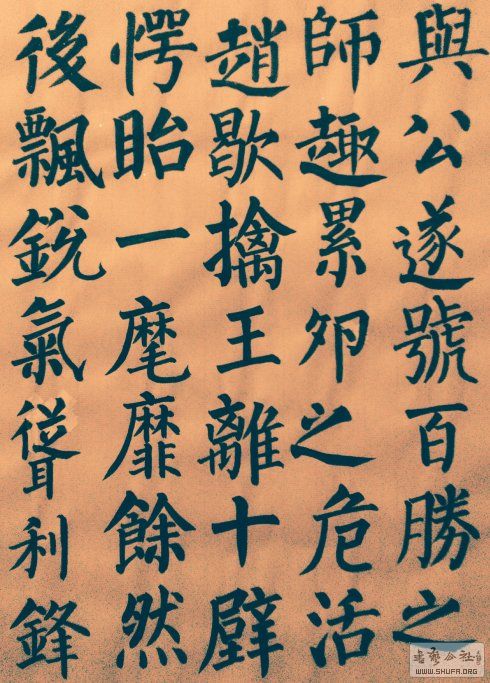 與公遂號百勝之
師趣累夘之危活
趙歇擒王離十壁
愕眙一麾靡餘然
後飄銳氣聳利鋒
書藝公社
WWW.SHUFA.ORG